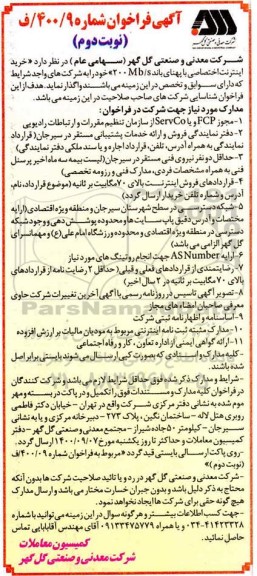 آگهی فراخوان شماره ۴۰۰/۹/ف
(نوبت دوم)
شرکت معدنی و صنعتی گل گهر (سهامی عام) در نظر دارد «خرید
اینترنت اختصاصی با پهنای باند 200Mb/s» خود را به شرکت های واجد شرایط
که دارای سوابق و تخصص در این زمینه می باشند واگذار نماید. هدف از این
فراخوان شناسایی شرکت های صاحب صلاحیت در این زمینه می باشد.
مدارک مورد نیاز جهت شرکت در فراخوان:
۱- مجوز FCP و یا ServCo از سازمان تنظیم مقررات و ارتباطات رادیویی
۲- دفتر نمایندگی فروش و ارائه خدمات پشتیبانی مستقر در سیرجان (قرارداد
نمایندگی به همراه آدرس، تلفن، قرارداد اجاره و یا سند ملکی دفتر نمایندگی)
۳- حداقل دو نفر نیروی فنی مستقر در سیرجان (لیست بیمه سه ماه اخیر پرسنل
فنی به همراه مشخصات فردی، مدارک فنی و رزومه تخصصی)
۴- قراردادهای فروش اینترنت بالای ۷۰ مگابیت بر ثانیه (موضوع قرارداد، نام،
آدرس و شماره تلفن خریدار ارسال گردد)
۵- شبکه دسترسی در سطح شهرستان سیرجان و منطقه ویژه اقتصادی (ارایه
مختصات و آدرس دقیق پاپ سایت ها و محدوده پوشش دهی و وجود شبکه
دسترسی در منطقه ویژه اقتصادی و محدوده ورزشگاه امام علی (ع) و مهمانسرای
گل گهر الزامی می باشد)
۶- ارایه AS Number جهت انجام روتینگ های مورد نیاز
۷- رضایتمندی از قراردادهای فعلی و قبلی (حداقل ۲ رضایت نامه از قراردادهای
بالای ۷۰ مگابیت بر ثانیه در ۲ سال اخیر)
۸- تصویر آگهی تاسیس در روزنامه رسمی با آگهی آخرین تغییرات شرکت حاوی
معرفی صاحبان امضاء های مجاز
۹- اساسنامه و اظهارنامه ثبتی شرکت
۱۰- مدارک مثبته ثبت نامه اینترنتی مربوط به مودیان مالیات بر ارزش افزوده
۱۱- ارائه گواهی ایمنی از اداره تعاون، کار و رفاه اجتماعی
- کلیه مدارک و اسنادی که بصورت کپی ارسال می شوند بایستی برابر اصل
شده باشند.
- شرایط و مدارک ذکر شده فوق حداقل شرایط لازم می باشد و شرکت کنندگان
در فراخوان کلیه مدارک و مستندات فوق را تکمیل و در پاکت دربسته و مهر
موم شده به نشانی دفتر مرکزی شرکت واقع در تهران – خیابان دکتر فاطمی
روبری هتل لاله – ساختمان نگین، پلاک ۲۷۳ – دبیرخانه مرکزی و یا به نشانی
سیرجان – کیلومتر ۵۰ جاده شیراز – مجتمع معدنی و صنعتی گل گهر – دفتر
کمیسیون معاملات و حداکثر تا روز یکشنبه مورخ ۱۴۰۰/۰۹/۰۷ ارسال گردد.
- روی پاکت ارسالی بایستی قید گردد «مربوط به فراخوان شماره ۴۰۰/۰۹/ف
(نوبت دوم)»
- شرکت معدنی و صنعتی گل گهر در رد و یا تائید صلاحیت شرکت ها بدون آنکه
محتاج به ذکر دلیل باشد و بدون جبران خسارت مختار می باشد و ارسال مدارک
هیچ گونه حقی برای شرکت ها ایجاد نخواهد نمود.
- جهت کسب اطلاعات بیشتر و هر گونه سوال در این زمینه می توانید با شماره
۰۳۴-۴۱۴۲۳۳۲۸ و یا همراه ۰۹۱۳۳۴۷۵۷۷۹ آقای مهندس آقابابایی تماس
حاصل نمائید.
کمیسیون معاملات
شرکت معدنی و صنعتی گل گهر